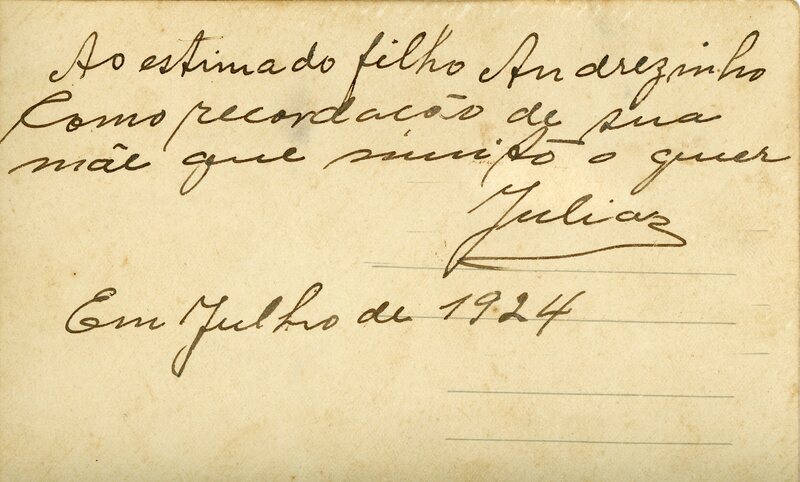 Ao estimado filho Andrezinho
Como recordação de sua
mãe que muito o quer
Julia
Em Julho de 1924